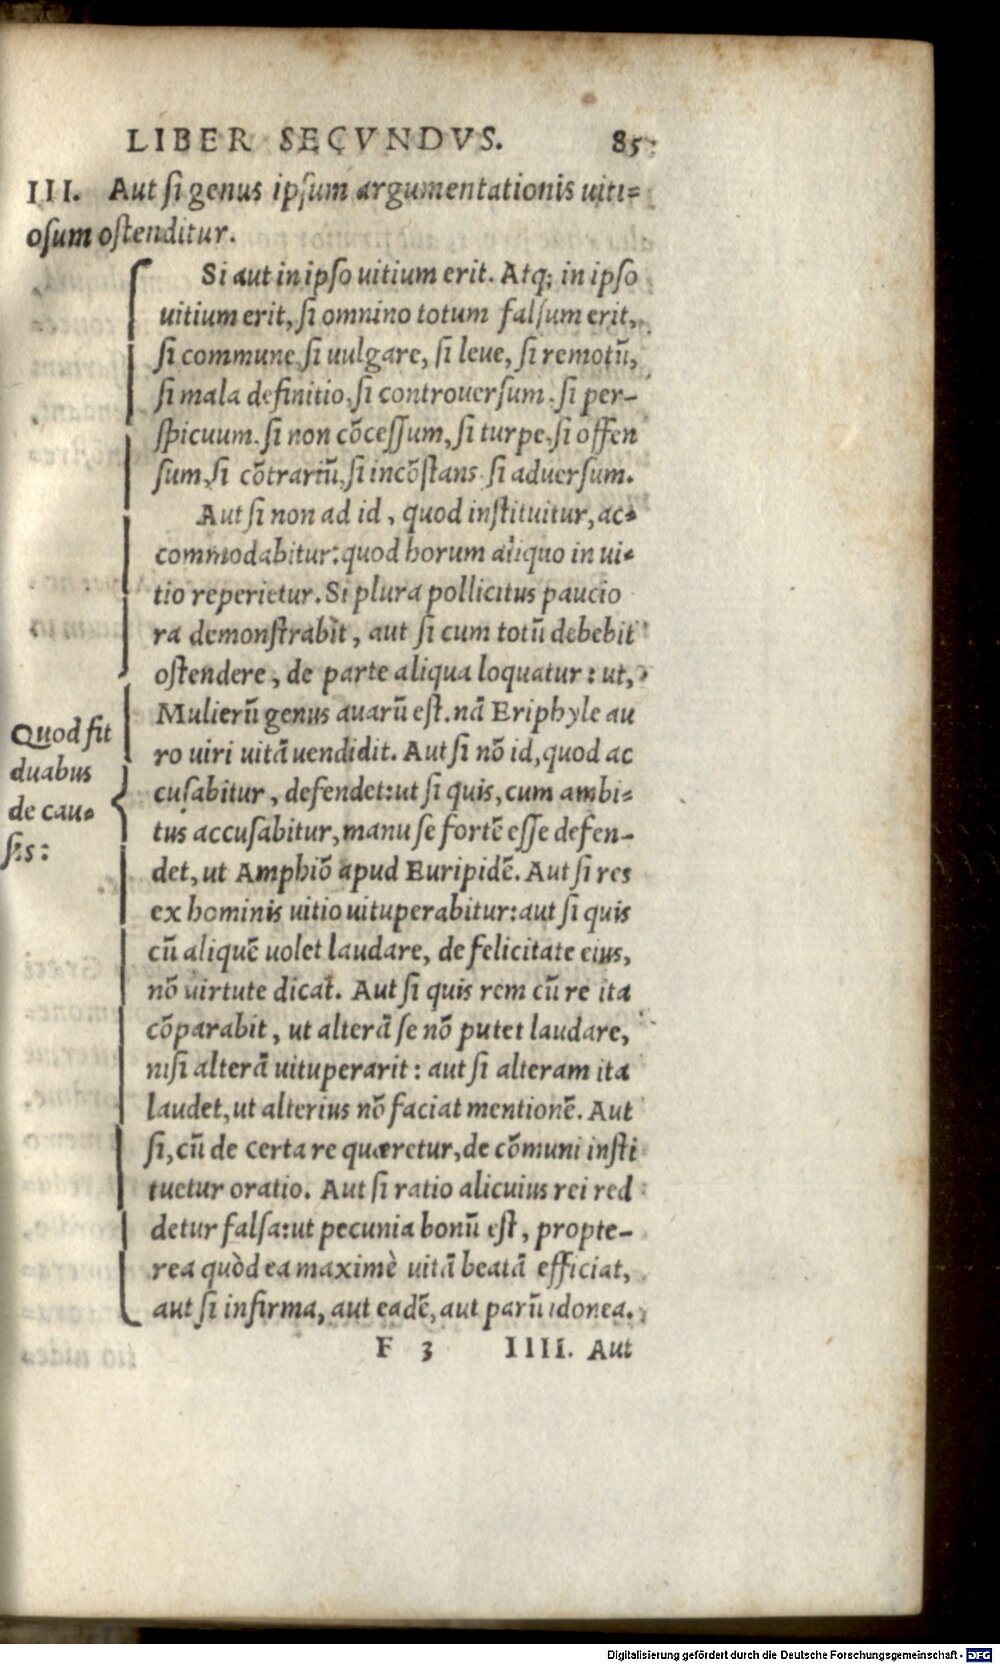 LIBER SECVNDVS. 85
III. Aut ſi genus ipſum argumentationis uiti=
oſum oſtenditur.
Si aut in ipſo uitium erit. Atq; in ipſo
uitium erit, ſi omnino totum falſum erit,
ſi commune, ſi uulgare, ſi leue, ſi remotū,
ſi mala definitio, ſi controuerſum. ſi per-
ſpicuum. ſi non cōceſſum, ſi turpe, ſi offen
ſum, ſi cōtrariū, ſi incōſtans. ſi aduerſum.
Aut ſi non ad id, quod inſtituitur, ac=
commodabitur: quod horum aliquo in ui=
tio reperietur. Si plura pollicitus paucio
ra demonſtrabit, aut ſi cum totū debebit
oſtendere, de parte aliqua loquatur: ut,
Mulierū genus auarū eſt. nā Eriphyle au
ro uiri uitā uendidit. Aut ſi nō id, quod ac
cuſabitur, defendet: ut ſi quis, cum ambi=
tus accuſabitur, manu ſe fortē eſſe defen-
det, ut Amphiō apud Euripidē. Aut ſi res
ex hominis uitio uituperabitur: aut ſi quis
cū aliquē uolet laudare, de felicitate eius,
nō uirtute dicat. Aut ſi quis rem cū re ita
cōparabit, ut alterā ſe nō putet laudare,
niſi alterā uituperarit: aut ſi alteram ita
laudet, ut alterius nō faciat mentionē. Aut
ſi, cū de certa re quæretur, de cōmuni inſti
tuetur oratio. Aut ſi ratio alicuius rei red
detur falſa: ut pecunia bonū eſt, propte-
rea quòd ea maximè uitā beatā efficiat,
aut ſi infirma, aut eadē, aut parū idonea.
Quod fit
duabus
de cau=
ſis:
F 3 IIII. Aut
Digitalisierung gefördert durch die Deutsche Forschungsgemeinschaft - DFG